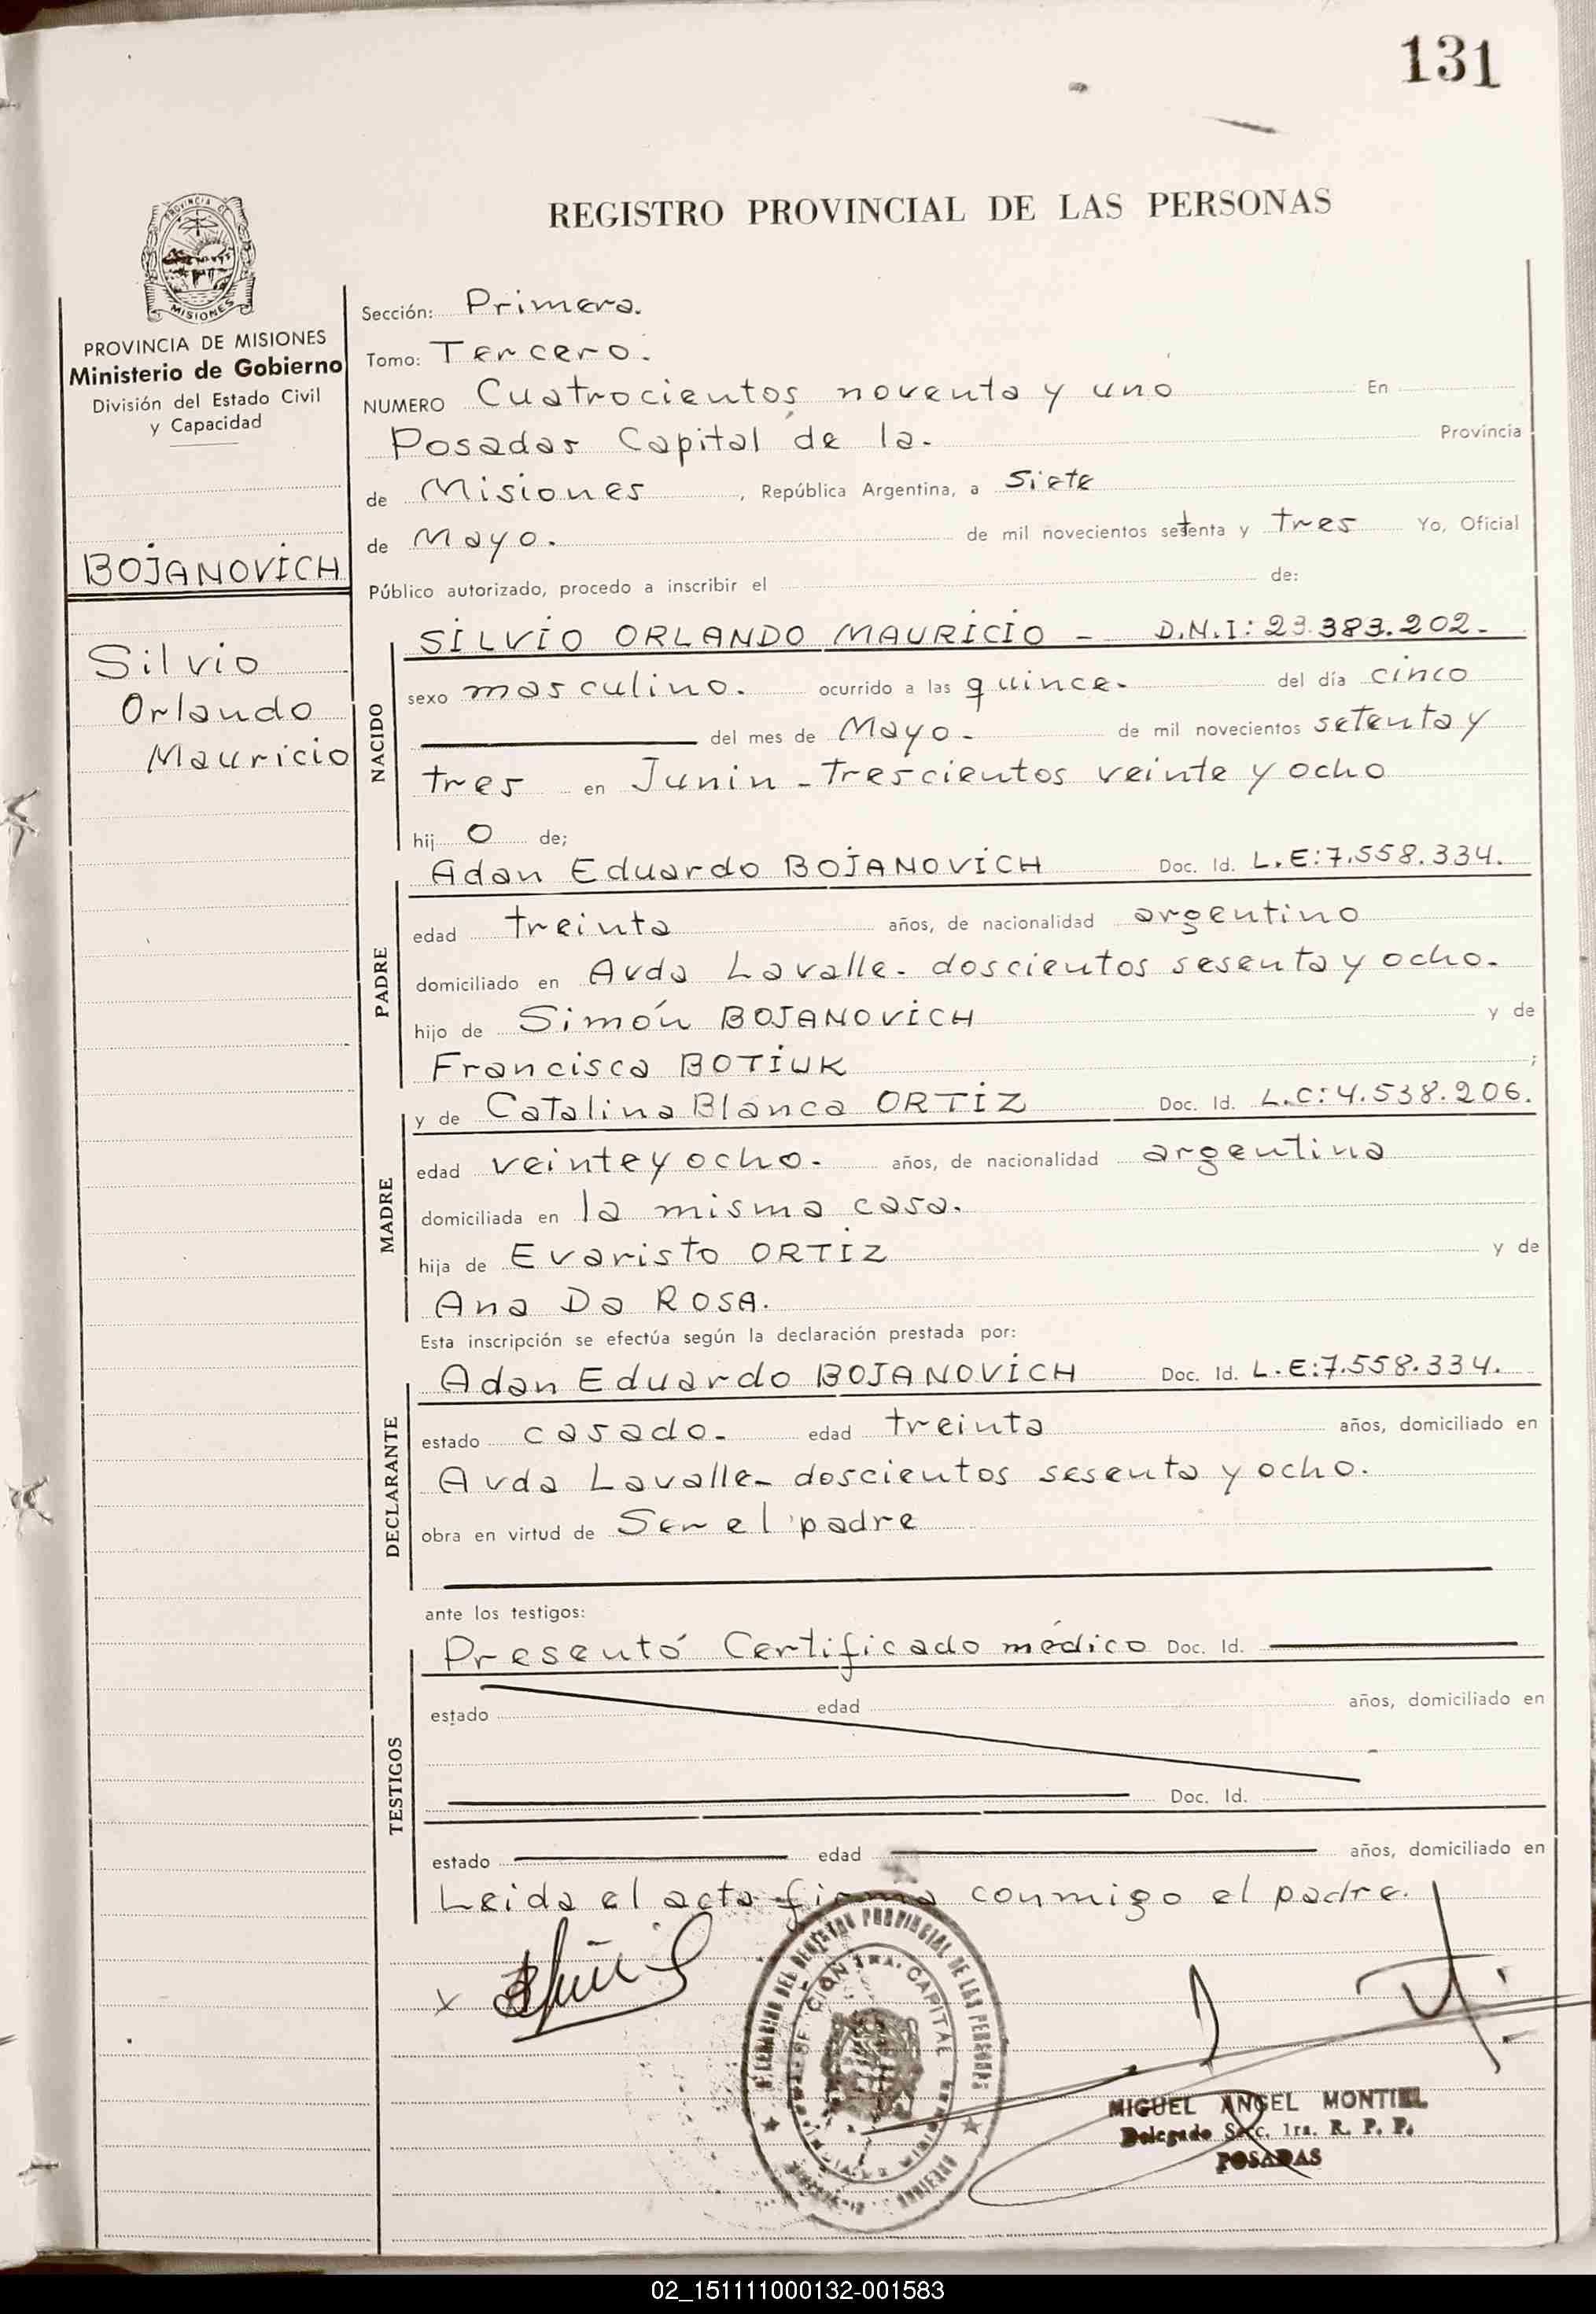 131
REGISTRO PROVINCIAL DE LAS PERSONAS
PROVINCIA DE
MISIONES
PROVINCIA DE MISIONES
Ministerio de Gobierno
División del Estado Civil
y Capacidad
BOJANOVICH
Silvio
Orlando
Mauricio
Sección: Primera.
Tomo: Tercero.
NUMERO Cuatrocientos noventa y uno En
Posadas Capital de la. Provincia
de Misiones, República Argentina, a Siete
de Mayo. de mil novecientos setenta y tres Yo, Oficial
Público autorizado, procedo a inscribir el de:
NACIDO
SILVIO ORLANDO MAURICIO - D.N.I: 23.383.202.
sexo masculino. ocurrido a las quince. del día cinco
del mes de Mayo. de mil novecientos setenta y
tres en Junin - Trescientos veinte y ocho
hij o de;
PADRE
Adan Eduardo BOJANOVICH Doc. Id. L.E:7.558.334.
edad treinta años, de nacionalidad argentino
domiciliado en Avda Lavalle. doscientos sesenta y ocho.
hijo de Simón BOJANOVICH y de
Francisca BOTIUK ;
MADRE
y de Catalina Blanca ORTIZ Doc. Id. L.C:4.538.206.
edad veinte y ocho. años, de nacionalidad argentina
domiciliada en la misma casa.
hija de Evaristo ORTIZ y de
Ana Da ROSA.
Esta inscripción se efectúa según la declaración prestada por:
DECLARANTE
Adan Eduardo BOJANOVICH Doc. Id. L.E:7.558.334.
estado casado. edad treinta años, domiciliado en
Avda Lavalle- doscientos sesenta y ocho.
obra en virtud de Ser el padre
ante los testigos:
TESTIGOS
Presentó Certificado médico Doc. Id.
estado edad años, domiciliado en
Doc. Id.
estado edad años, domiciliado en
Leida el acta firma conmigo el padre.
x
REGISTRO PROVINCIAL DE LAS PERSONAS
CAPITAL
MIGUEL ANGEL MONTIEL
Delegado Sec. 1ra. R. P. P.
POSADAS
02_151111000132-001583